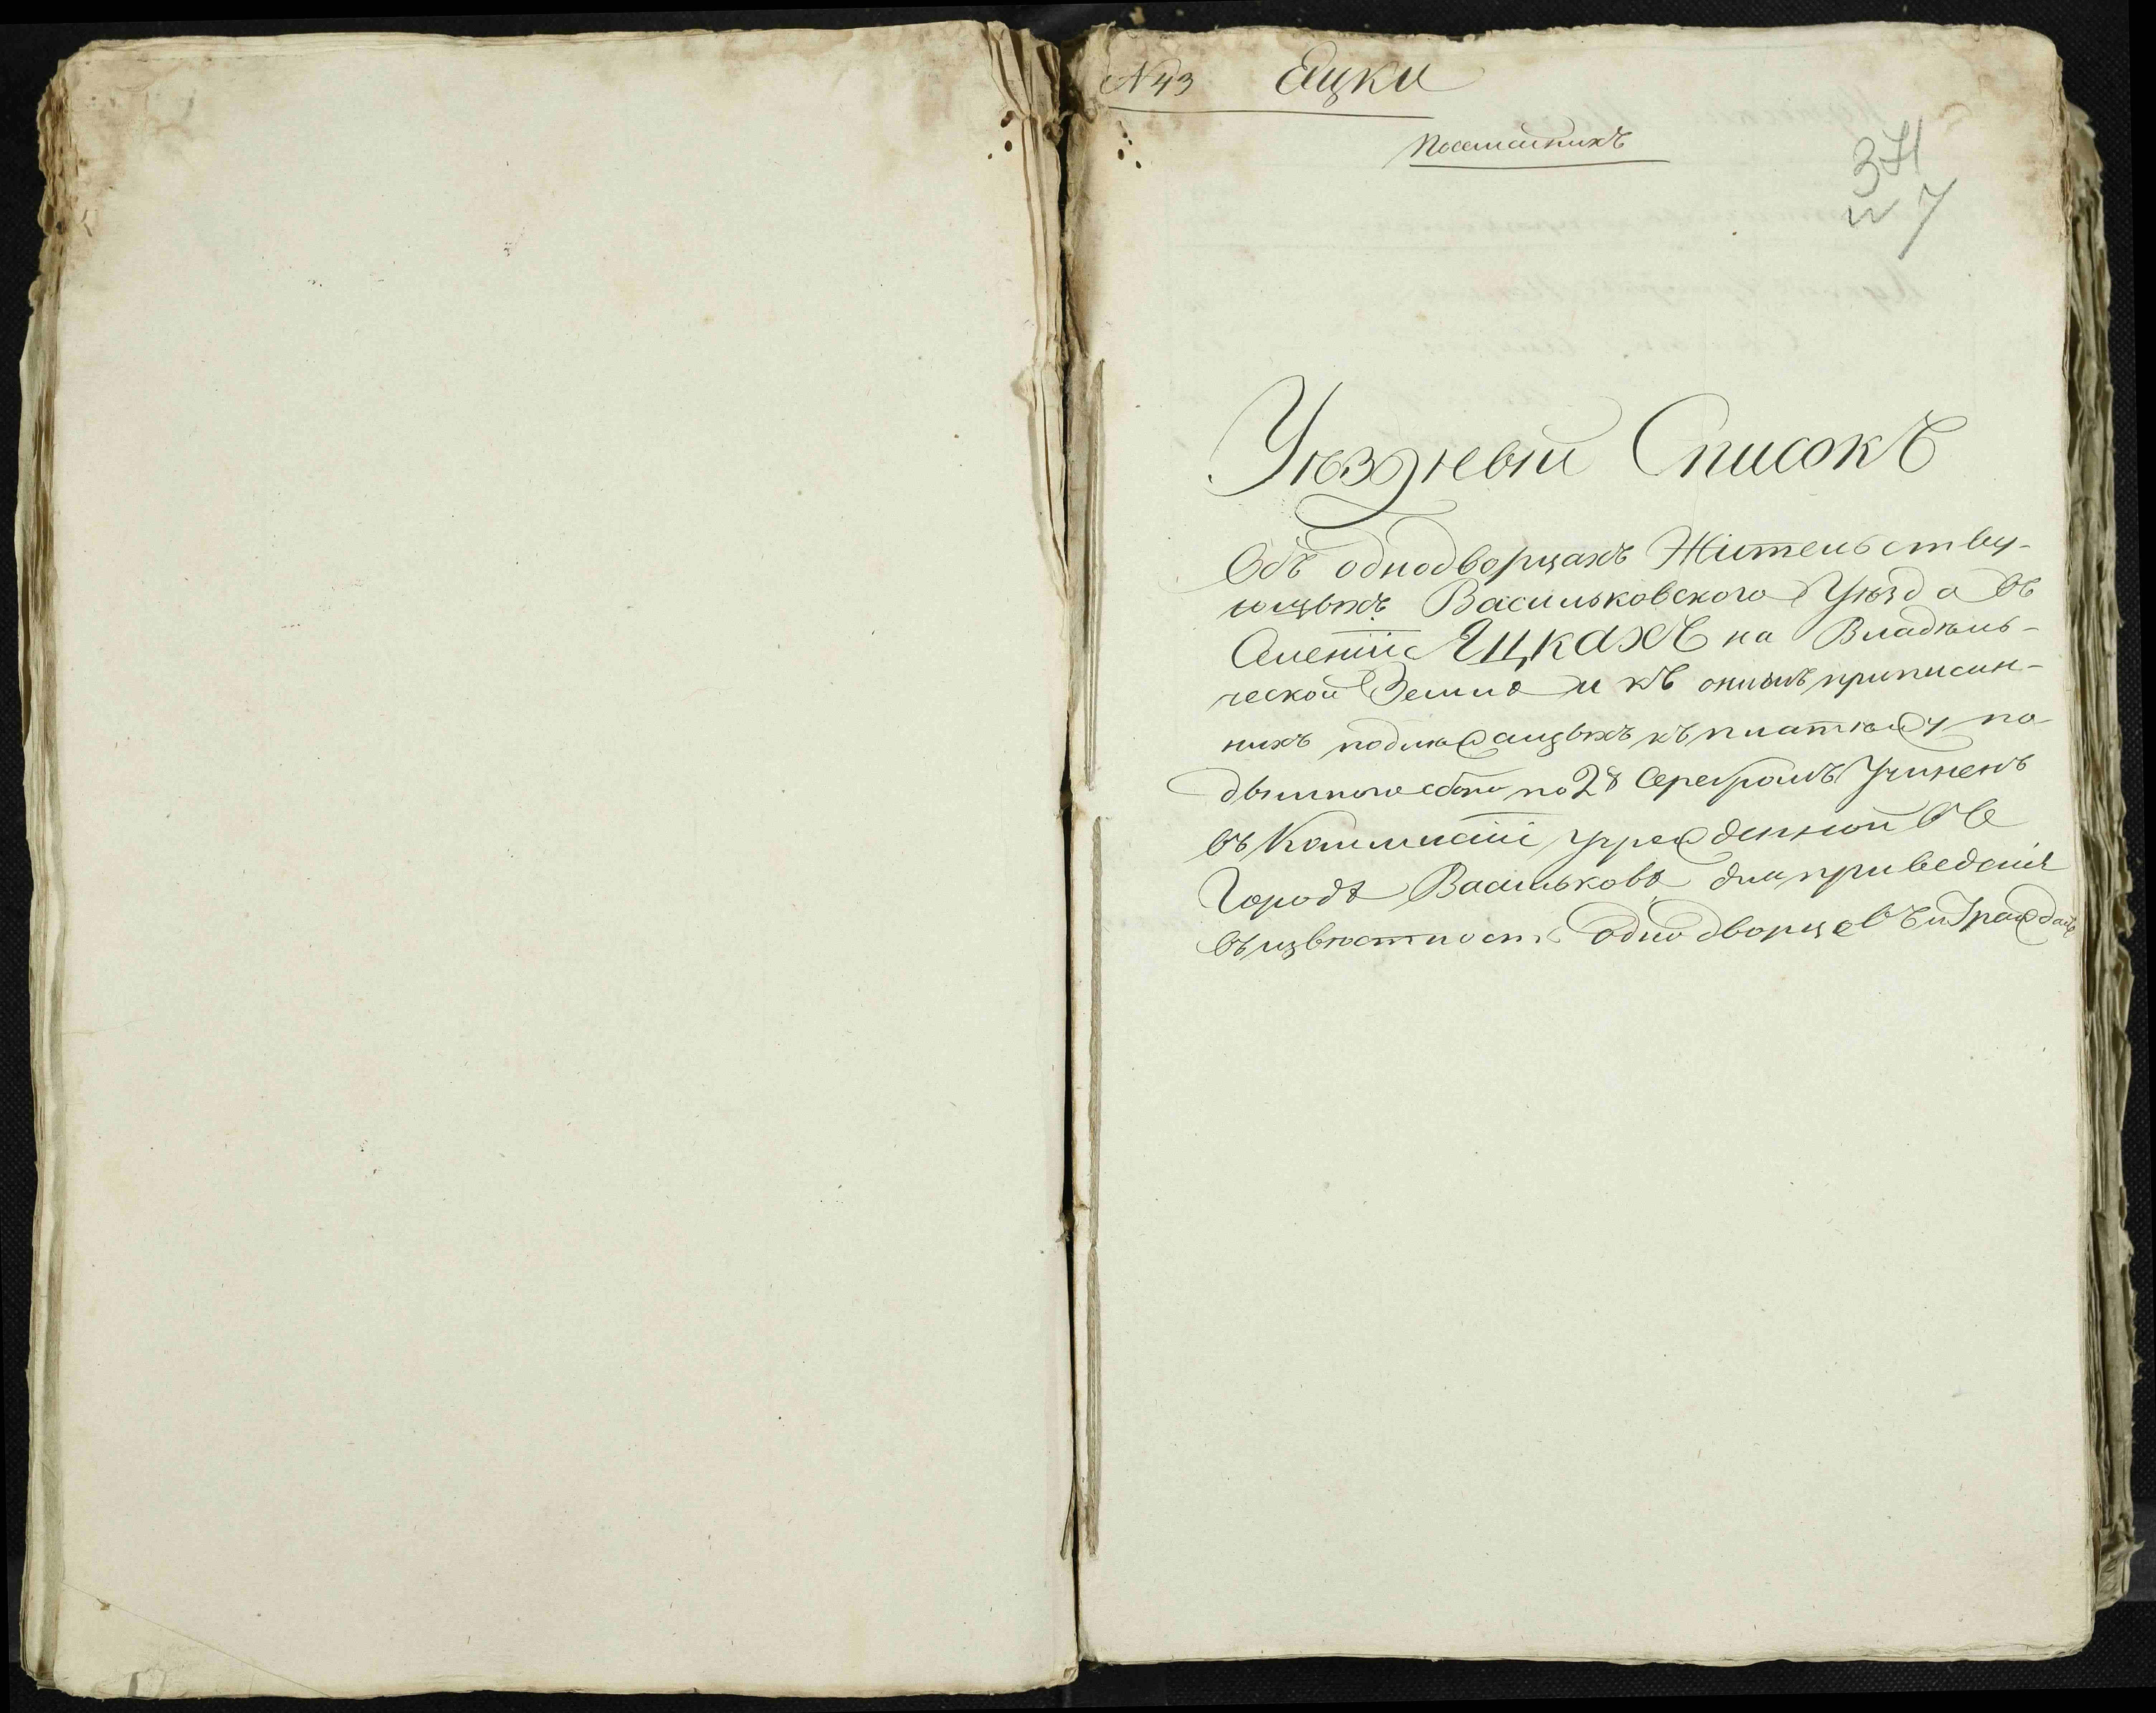 № 43 Яцки
371
7
Уѣздный Списокъ
Объ однодворцахъ Жительству-
ющыхъ Васильковского Уѣзда въ
Селеніи Яцкахъ на Владѣль-
ческой Землѣ и къ онымъ приписан-
нихъ подлежащыхъ къ платежу по-
дымного сбору по 2 р Серебромъ Учиненъ
въ Коммисіи учрежденной въ
Городѣ Василькове для приведенія
въ извѣстность однодворцевъ и Гражданъ